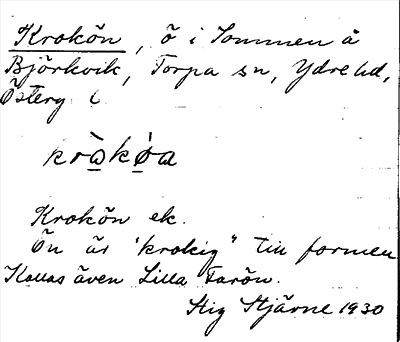 Krokön, ö i Sommen å
Björkvik, Torpa sn, Ydre hd,
Österg l
kròkǿa
Krokön ek.
Ön är "krokig" till formen
Kallas även Lilla Farön.
Stig Stjärne 1930